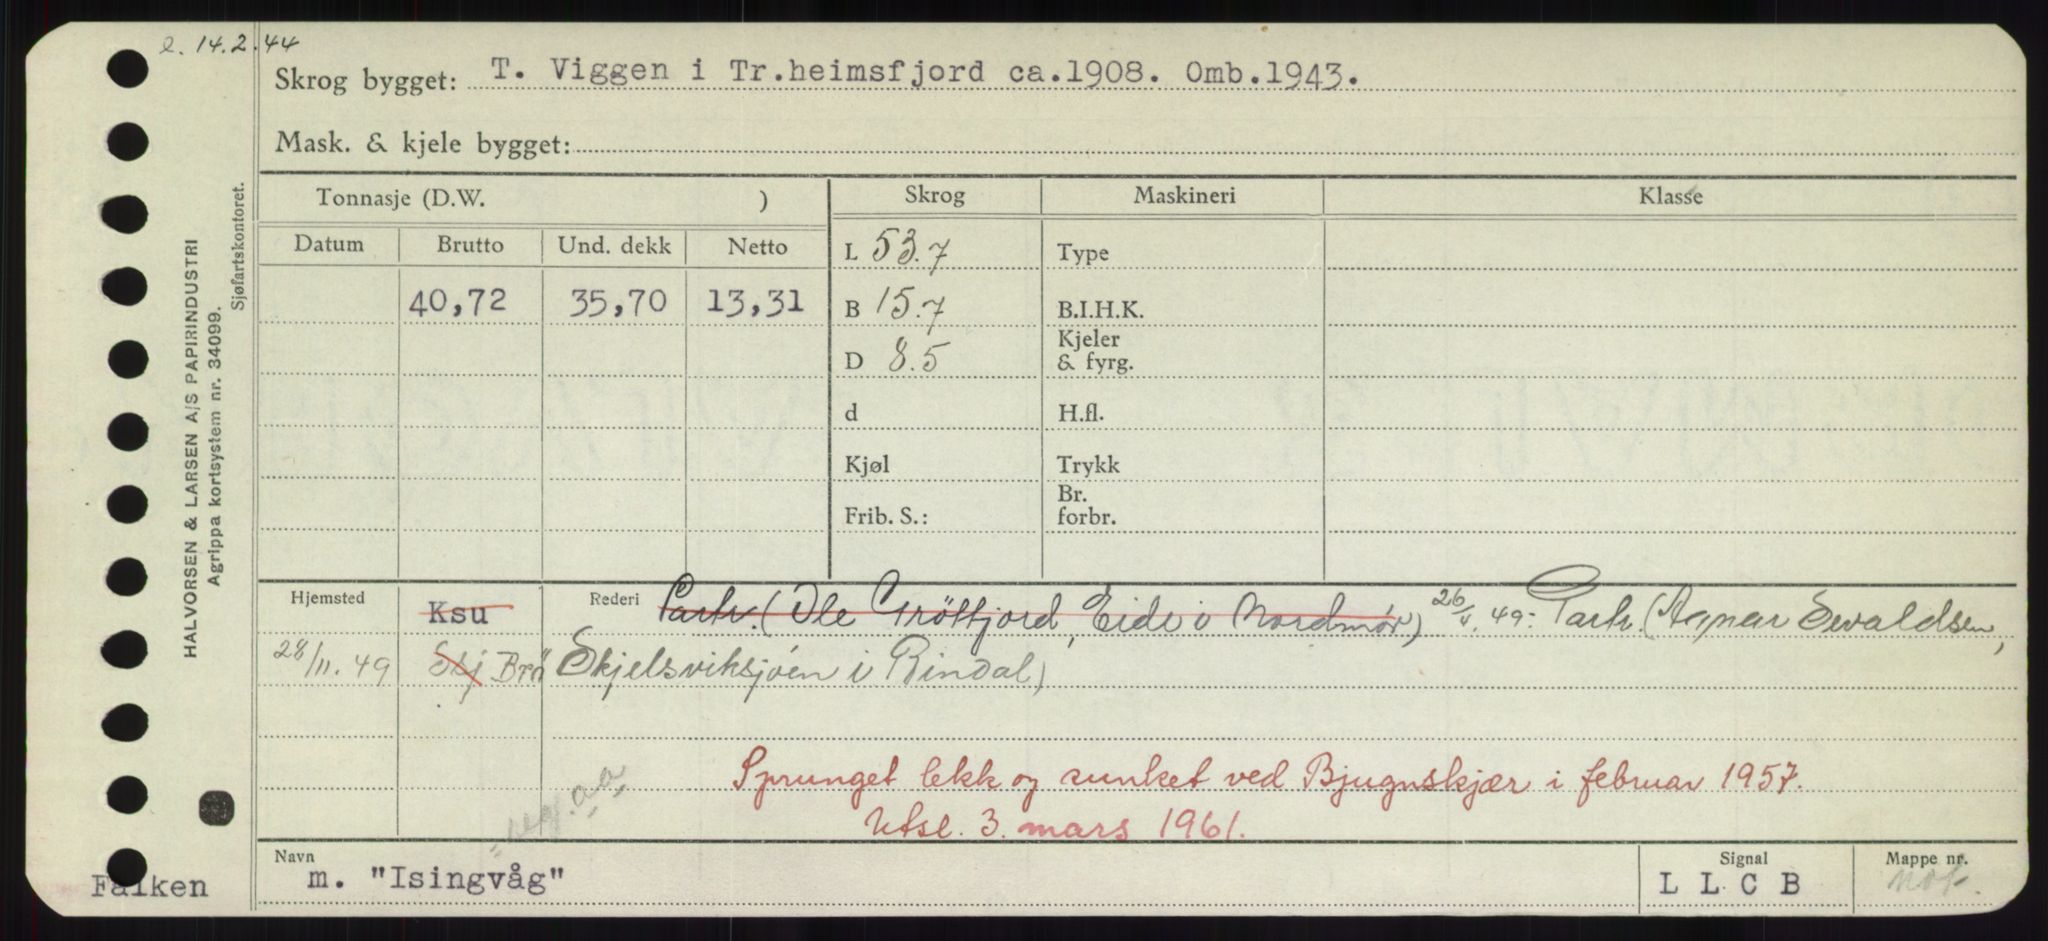 e. 14.2.44
Skrog bygget: T. Viggen i Tr.heimsfjord ca.1908. Omb.1943.
Mask. & kjele bygget:
HALVORSEN & LARSEN A/S PAPIRINDUSTRI
Agrippa kortsystem nr. 34099.
Sjøfartskontoret.
Tonnasje (D.W. ) Skrog Maskineri Klasse
Datum Brutto Und. dekk Netto L 53.7 Type
40,72 35,70 13,31 B 15.7 B.I.H.K.
D 8.5 Kjeler & fyrg.
d H.fl.
Kjøl Trykk
Frib. S.: Br. forbr.
Hjemsted Ksu Rederi Partr. (Ole Grötfjord, Eide i Nordmör) 26/4.49: Partr. (Agnar Sevaldsen,
28/11.49 Ssj Brö Skjelsviksjöen i Bindal)
Sprunget lekk og sunket ved Bjugnskjær i februar 1957.
Utsl. 3. mars 1961.
"reg. aa"
Navn m. "Isingvåg" Signal L L C B Mappe nr. not.
Falken